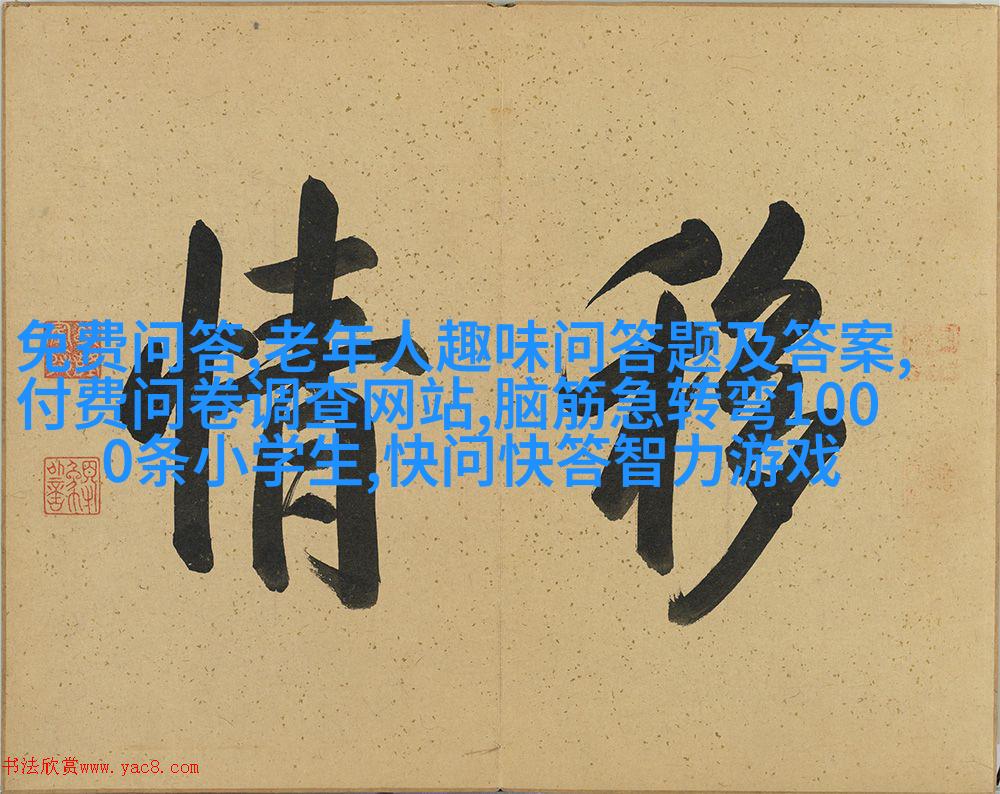 移情
免费问答,老年人趣味问答题及答案,
付费问卷调查网站,脑筋急转弯100
0条小学生,快问快答智力游戏
书法欣赏www.yac8.com